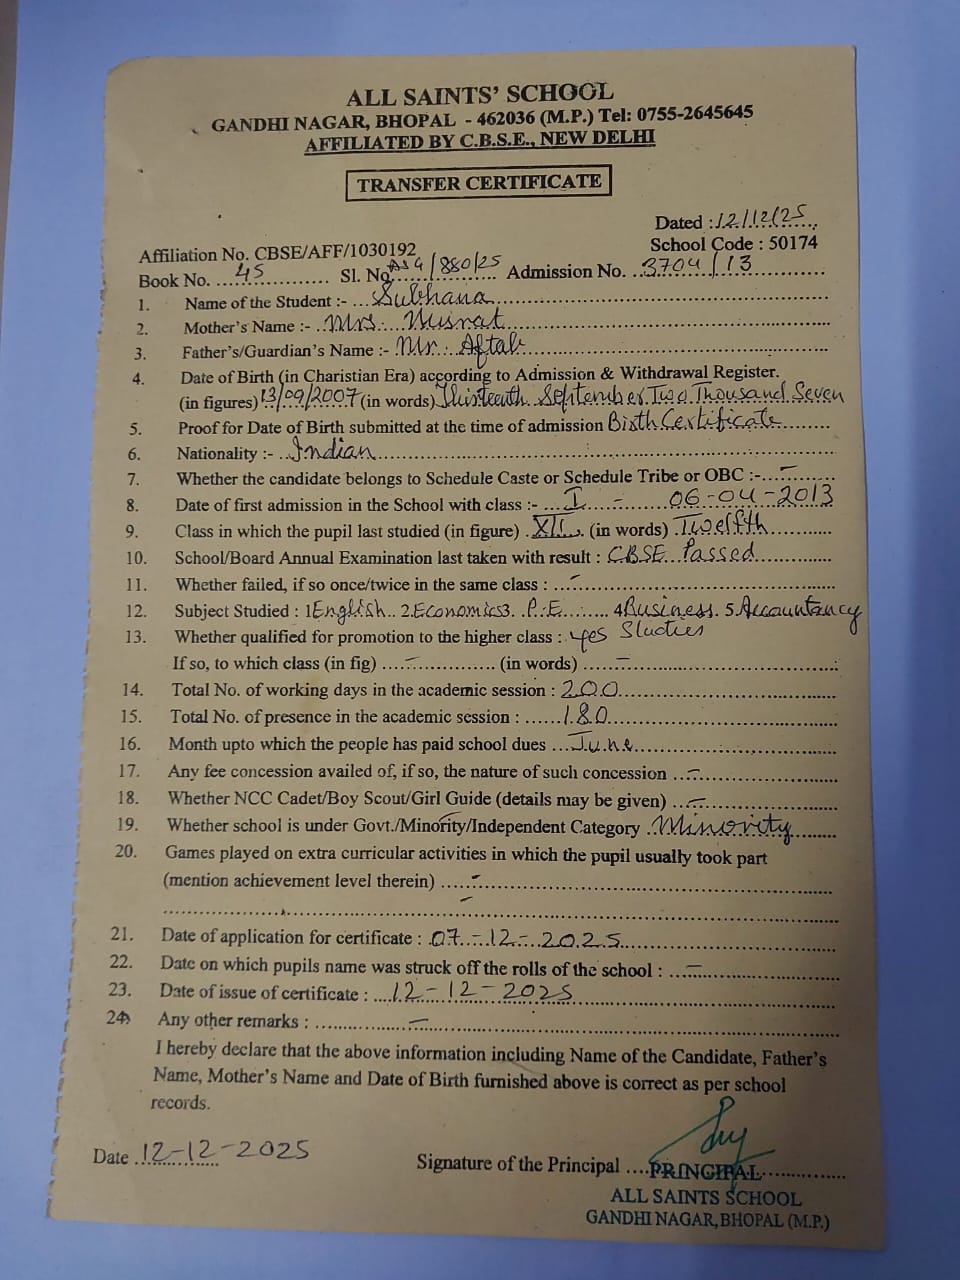 ALL SAINTS' SCHOOL
GANDHI NAGAR, BHOPAL - 462036 (M.P.) Tel: 0755-2645645
AFFILIATED BY C.B.S.E., NEW DELHI
TRANSFER CERTIFICATE
Dated : 12/12/25
Affiliation No. CBSE/AFF/1030192 School Code : 50174
Book No. 45 Sl. No. 4/880/25 Admission No. 3704/13
1. Name of the Student :- Subhana
2. Mother's Name :- Mrs. Nusrat
3. Father's/Guardian's Name :- Mr. Aftab
4. Date of Birth (in Charistian Era) according to Admission & Withdrawal Register.
(in figures) 13/09/2007 (in words) Thirteenth September Two Thousand Seven
5. Proof for Date of Birth submitted at the time of admission Birth Certificate
6. Nationality :- Indian
7. Whether the candidate belongs to Schedule Caste or Schedule Tribe or OBC :- -
8. Date of first admission in the School with class :- I - 06-04-2013
9. Class in which the pupil last studied (in figure) XII (in words) Twelfth
10. School/Board Annual Examination last taken with result : CBSE Passed
11. Whether failed, if so once/twice in the same class : -
12. Subject Studied : 1 English 2. Economics 3. P.E. 4 Business 5. Accountancy
Studies
13. Whether qualified for promotion to the higher class : yes
If so, to which class (in fig) - (in words) -
14. Total No. of working days in the academic session : 200
15. Total No. of presence in the academic session : 180
16. Month upto which the people has paid school dues June
17. Any fee concession availed of, if so, the nature of such concession -
18. Whether NCC Cadet/Boy Scout/Girl Guide (details may be given) -
19. Whether school is under Govt./Minority/Independent Category Minority
20. Games played on extra curricular activities in which the pupil usually took part
(mention achievement level therein) -
-
21. Date of application for certificate : 07-12-2025
22. Date on which pupils name was struck off the rolls of the school : -
23. Date of issue of certificate : 12-12-2025
24. Any other remarks : -
I hereby declare that the above information including Name of the Candidate, Father's
Name, Mother's Name and Date of Birth furnished above is correct as per school
records.
Date 12-12-2025
Signature of the Principal
PRINCIPAL
ALL SAINTS SCHOOL
GANDHI NAGAR, BHOPAL (M.P.)